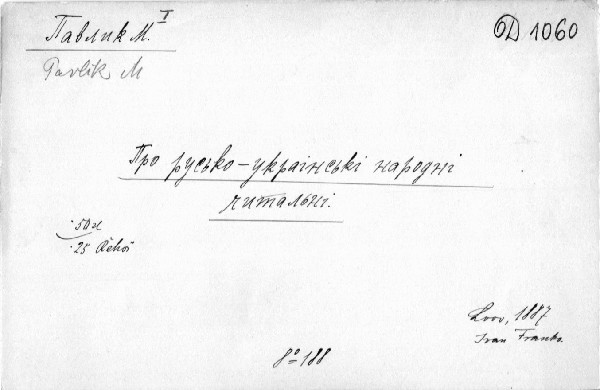 Павлик М. I
D 1060
Pavlik M
Про русько-українські народні
читальні.
50
25
Lvov, 1887
Ivan Franko
8° 188